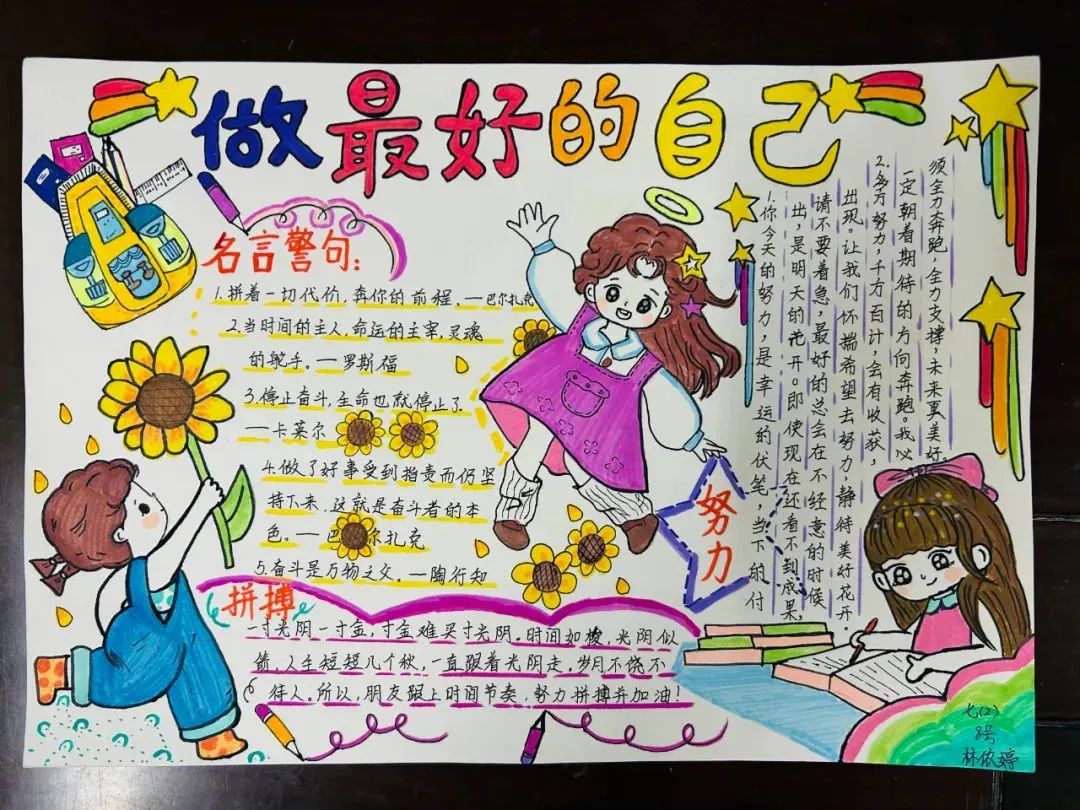 做最好的自己
名言警句:
1.拼着一切代价,奔你的前程。——巴尔扎克
2.当时间的主人,命运的主宰,灵魂
的舵手。——罗斯福
3.停止奋斗,生命也就停止了
——卡莱尔
4.做了好事受到指责而仍坚
持下来,这就是奋斗者的本
色。——巴尔扎克
5.奋斗是万物之父。——陶行知
拼搏
一寸光阴一寸金,寸金难买寸光阴。时间如梭,光阴似
箭,人生短短几个秋,一直跟着光阴走,岁月不饶不
待人,所以,朋友跟上时间节奏,努力拼搏并加油!
努力
1.你今天的努力,是幸运的伏笔,当下的付
出,是明天的花开。即使现在还看不到成果,
请不要着急,最好的总会在不经意的时候
出现。让我们怀揣希望去努力,静待美好花开.
2.多方努力,千方百计,会有收获,
一定朝着期待的方向奔跑。我必
须全力奔跑,全力支撑,未来更美好。
七(2)
8号